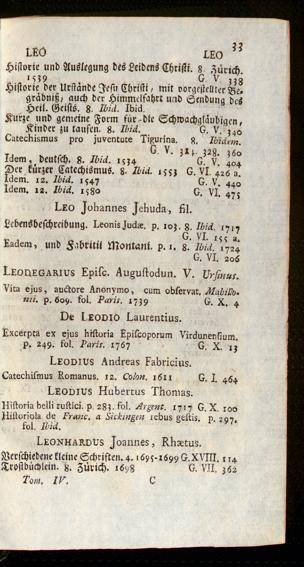 33
LEO LEO
Historie und Auslegung des Leidens Christi. 8. Zürich.
1539 G. V. 338
Historie der Urstände Jesu Christi, mit vorgestellter Be-
gräbniß, auch der Himmelfahrt und Sendung des
Heil. Geists. 8. Ibid. Ibid.
Kurze und gemeine Form für die Schwachgläubigen,
Kinder zu taufen. 8. Ibid. G. V. 340
Catechismus pro juventute Tigurina. 8. Ibidem.
G. V. 324. 328. 360
Idem, deutsch. 8. Ibid. 1534 G. V. 404
Der kürzer Catechismus. 8. Ibid. 1553 G. VI. 426 a.
Idem. 12. Ibid. 1547 G. V. 440
Idem. 12. Ibid. 1580 G. VI. 475
LEO Johannes Jehuda, fil.
Lebensbeschreibung. Leonis Judæ. p. 103. 8. Ibid. 1717
G. VI. 155 a.
Eadem, und Fabritii Montani. p. 1. 8. Ibid. 1724
G. VI. 206
LEODEGARIUS Episc. Augustodun. V. Ursinus.
Vita ejus, auctore Anonymo, cum observat. Mabillo-
nii. p. 609. fol. Paris. 1739 G. X. 4
De LEODIO Laurentius.
Excerpta ex ejus historia Episcoporum Virdunensium.
p. 249. fol. Paris. 1767 G. X. 13
LEODIUS Andreas Fabricius.
Catechismus Romanus. 12. Colon. 1611 G. I. 464
LEODIUS Hubertus Thomas.
Historia belli rustici. p. 283. fol. Argent. 1717 G. X. 100
Historiola de Franc. a Sickingen rebus gestis. p. 297.
fol. Ibid.
LEONHARDUS Joannes, Rhætus.
Verschiedene kleine Schriften. 4. 1695-1699 G. XVIII. 114
Trostbüchlein. 8. Zürich. 1698 G. VII. 362
Tom. IV. C